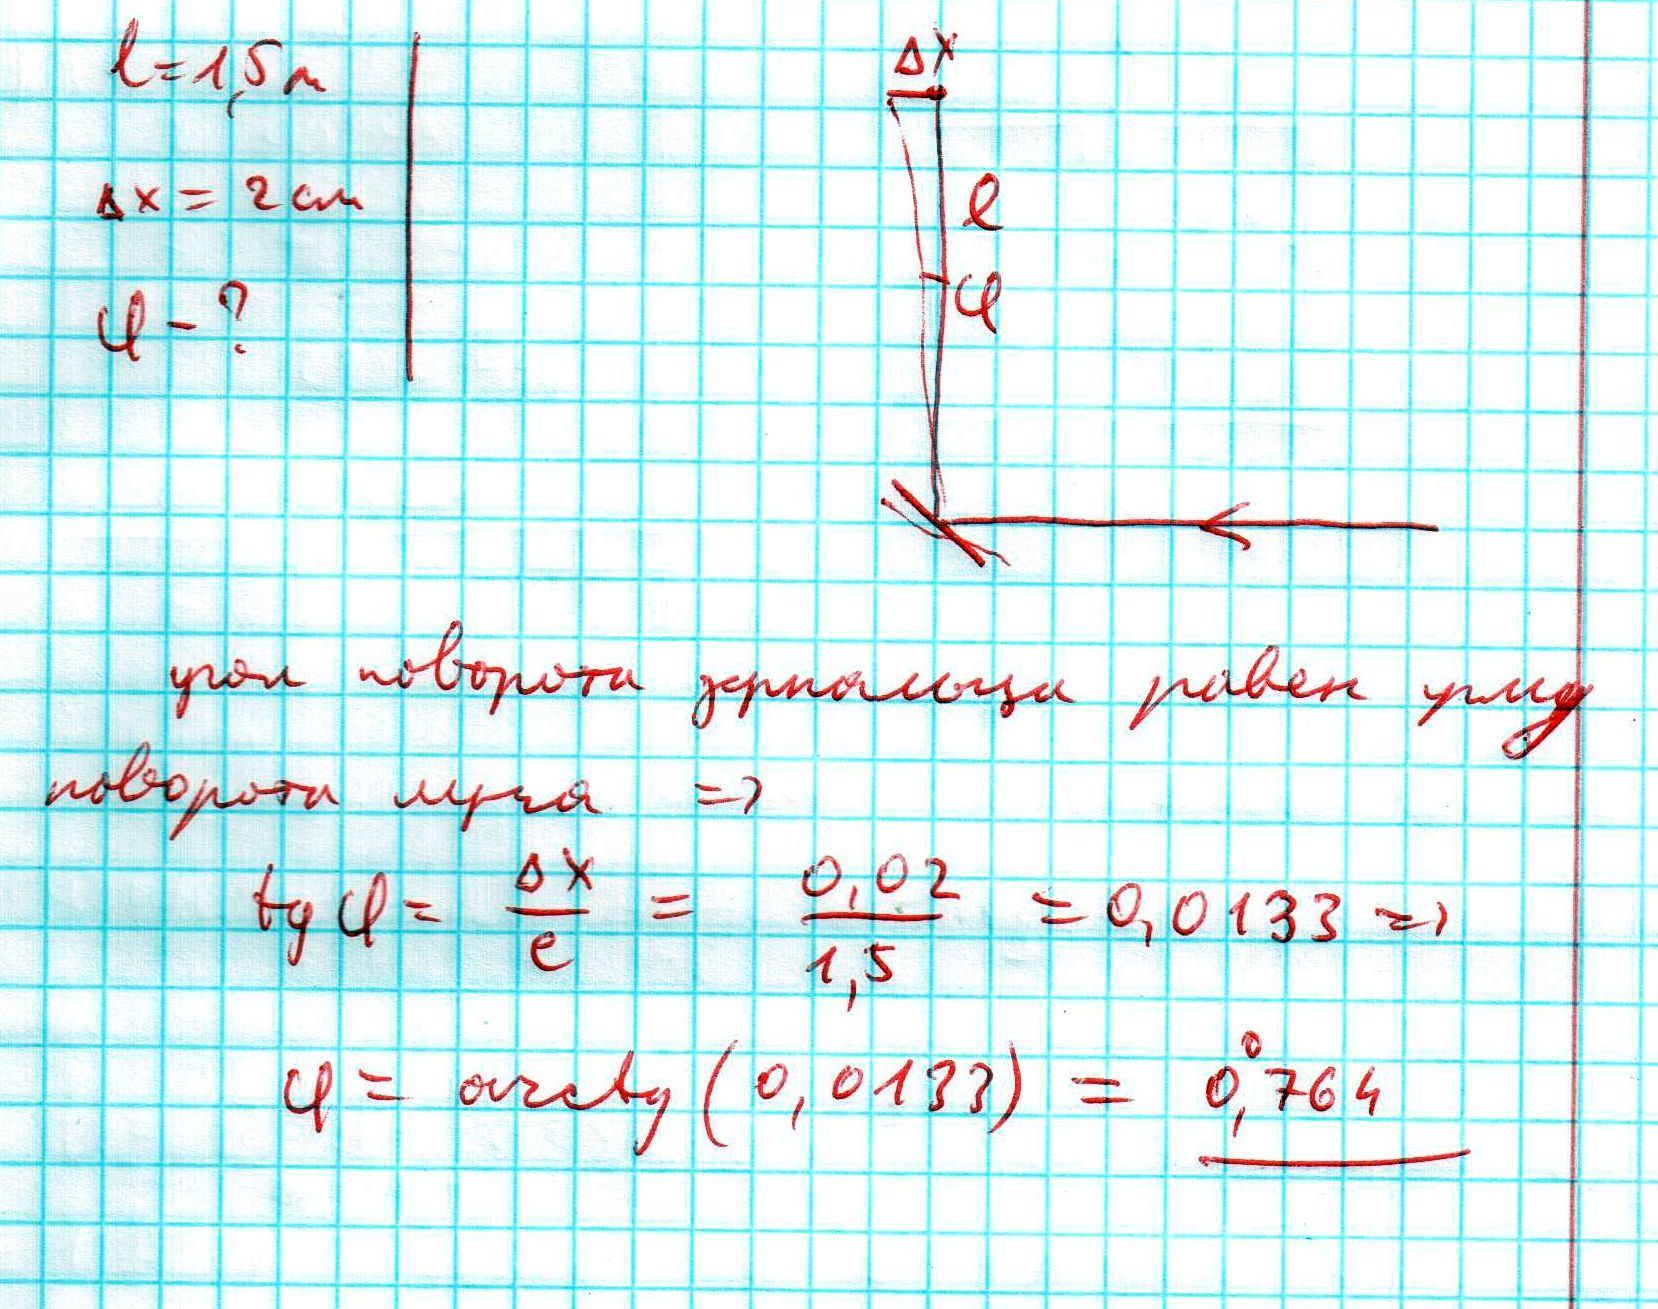 l = 1,5 м
Δx = 2 см
φ - ?
Δx
l
φ
угол поворота зеркальца равен углу
поворота луча =>
tg φ = Δx / l = 0,02 / 1,5 = 0,0133 =>
φ = arctg (0,0133) = 0°,764